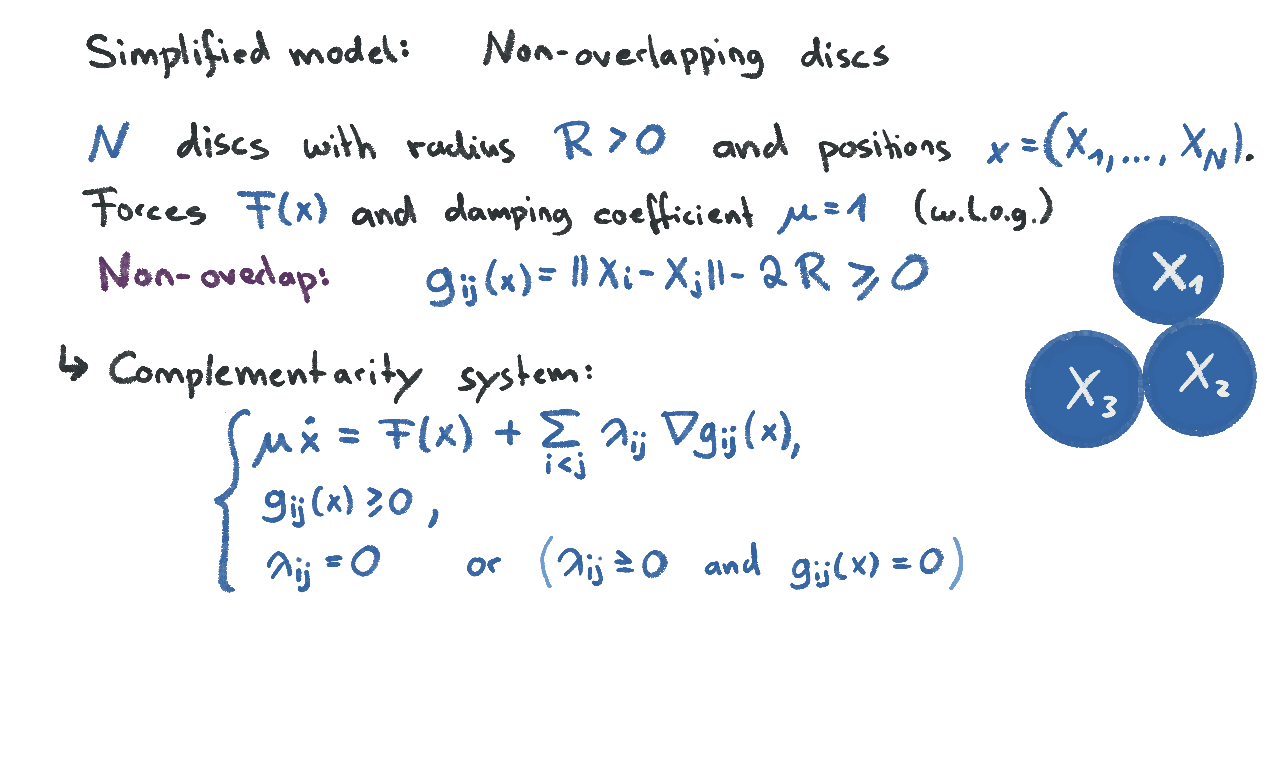 Simplified model: Non-overlapping discs
N discs with radius R > 0 and positions x = (X₁,..., X_N).
Forces F(x) and damping coefficient μ = 1 (w.l.o.g.)
Non-overlap: g_ij(x) = ||X_i - X_j|| - 2R ⩾ 0
X₁
X₃ X₂
↳ Complementarity system:
{ μẋ = F(x) + Σ_{i<j} λ_ij ∇g_ij(x),
g_ij(x) ⩾ 0,
λ_ij = 0 or (λ_ij ≥ 0 and g_ij(x) = 0)